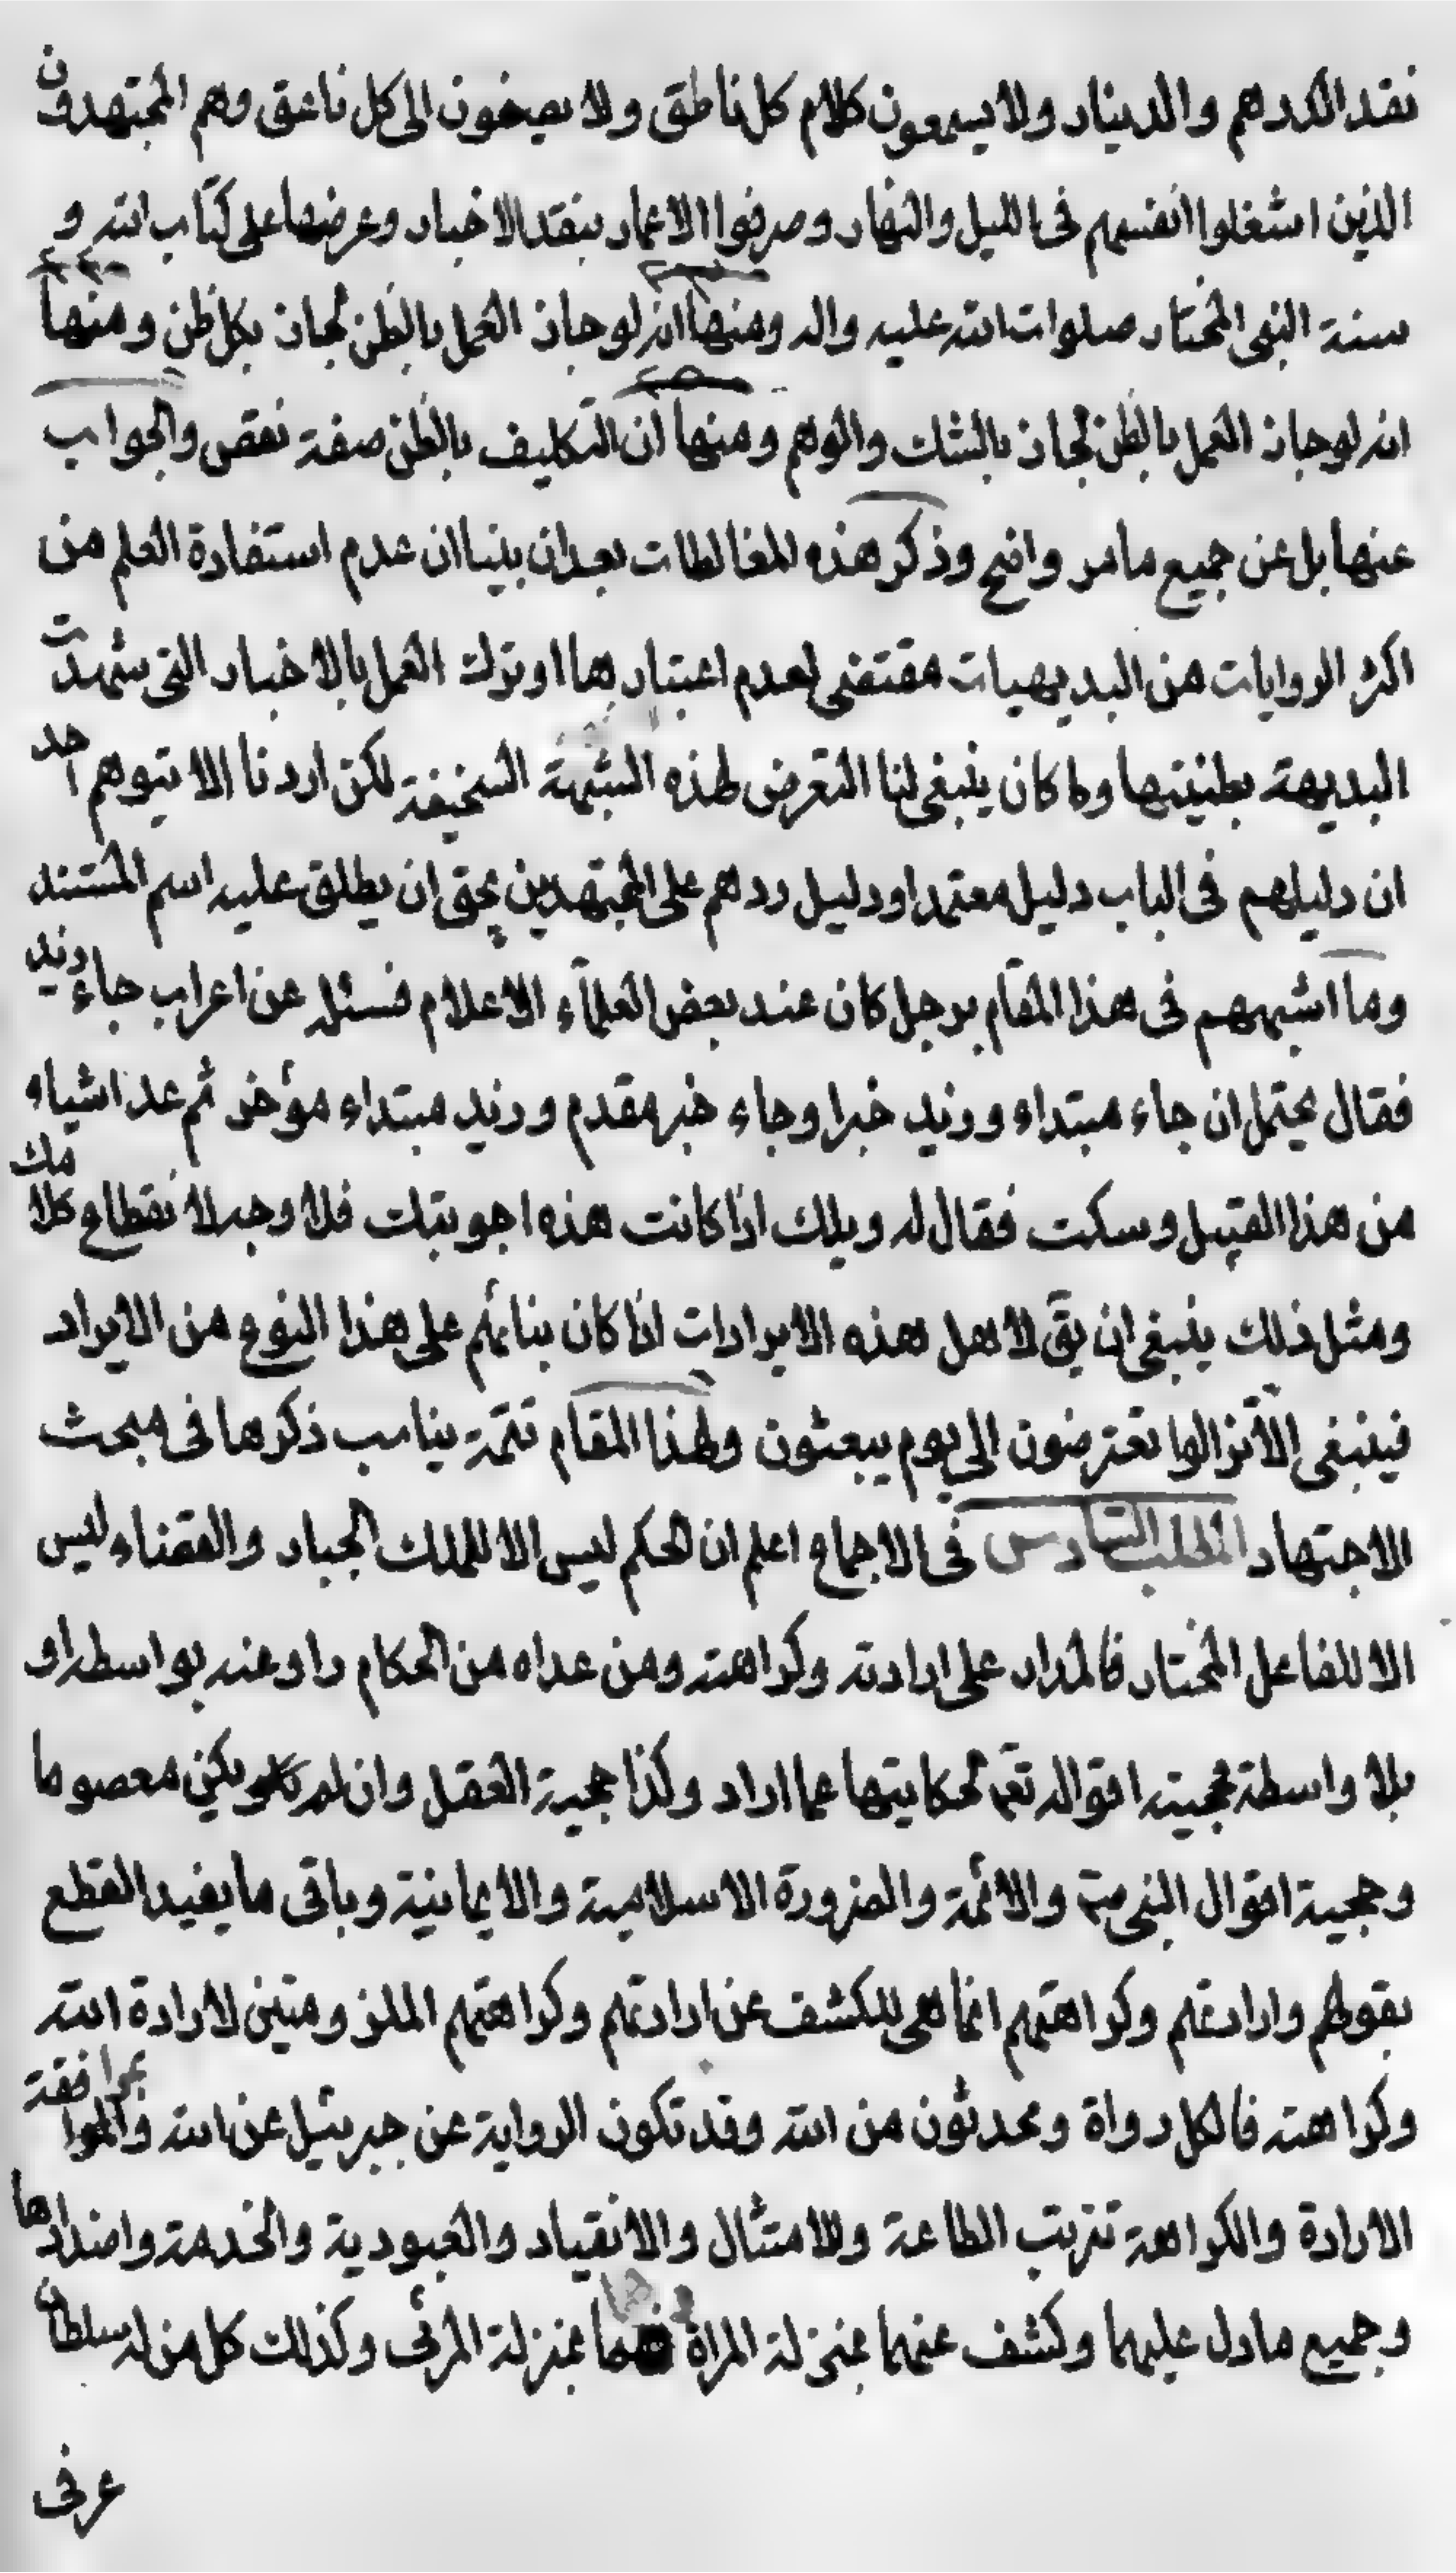 نقد الدرهم والدينار ولا يسمعون كلام كل ناطق ولا يصيخون الى كل ناعق وهم المجتهدون
الذين اشغلوا انفسهم فى الليل والنهار وصرفوا الاعمار بنقد الاخبار وعرضها على كتاب الله و
سنة النبى المختار صلوات الله عليه واله ومنها انه لو جاز العمل بالظن لجاز بكل ظن ومنها
انه لو جاز العمل بالظن لجاز بالشك والوهم ومنها ان التكليف بالظن صفة نقص والجواب
عنها بل عن جميع ما مر واضح وذكر هذه المغالطات بعد ان بينا ان عدم استفادة العلم من
اكثر الروايات من البديهيات مقتضى لعدم اعتبارها او ترك العمل بالاخبار التى شهدت
البديهة بظنيتها وما كان ينبغى لنا التعرض لهذه الشبهة السخيفة لكن اردنا الا يتوهم احد
ان دليلهم فى الباب دليل معتمد او دليل ردهم على المجتهدين بحق ان يطلق عليه اسم المستند
وما اشبههم فى هذا المقام برجل كان عند بعض العلمآء الاعلام فسئله عن اعراب جاء زيد
فقال يحتمل ان جاء مبتداء وزيد خبرا وجاء خبر مقدم وزيد مبتداء مؤخر ثم عد اشياء
من هذا القبيل وسكت فقال له ويلك اذا كانت هذه اجوبتك فلا وجه لانقطاع كلامك
ومثل ذلك ينبغى ان يق لاهل هذه الايرادات اذا كان بنائهم على هذا النوع من الايراد
فينبغى الا تزالوا تعترضون الى يوم يبعثون ولهذا المقام تتمة يناسب ذكرها فى مبحث
الاجتهاد المطلب السادس فى الاجماع اعلم ان الحكم ليس الا للملك الجبار والقضاء ليس
الا للفاعل المختار فالمدار على ارادته وكراهته ومن عداه من الحكام راو عنه بواسطه او
بلا واسطة فحجيته اقواله تعم لحكايتها عما اراد وكذا حجية العقل وان لم يكن معصوما
وحجية اقوال النبى والائمة والضرورة الاسلامية والايمانية وباقى ما يفيد القطع
بقولهم وارادتهم وكراهتهم انما هى للكشف عن ارادتهم وكراهتهم الملزومتين لارادة الله
وكراهته فالكل رواة ومحدثون من الله وقد تكون الرواية عن جبرئيل عن الله وبموافقة
الارادة والكراهة تترتب الطاعة والامتثال والانقياد والعبودية والخدمة واضدادها
وجميع ما دل عليهما وكشف عنهما بمنزلة المراة فهما بمنزلة المرئى وكذلك كل من له سلطان
عرفى